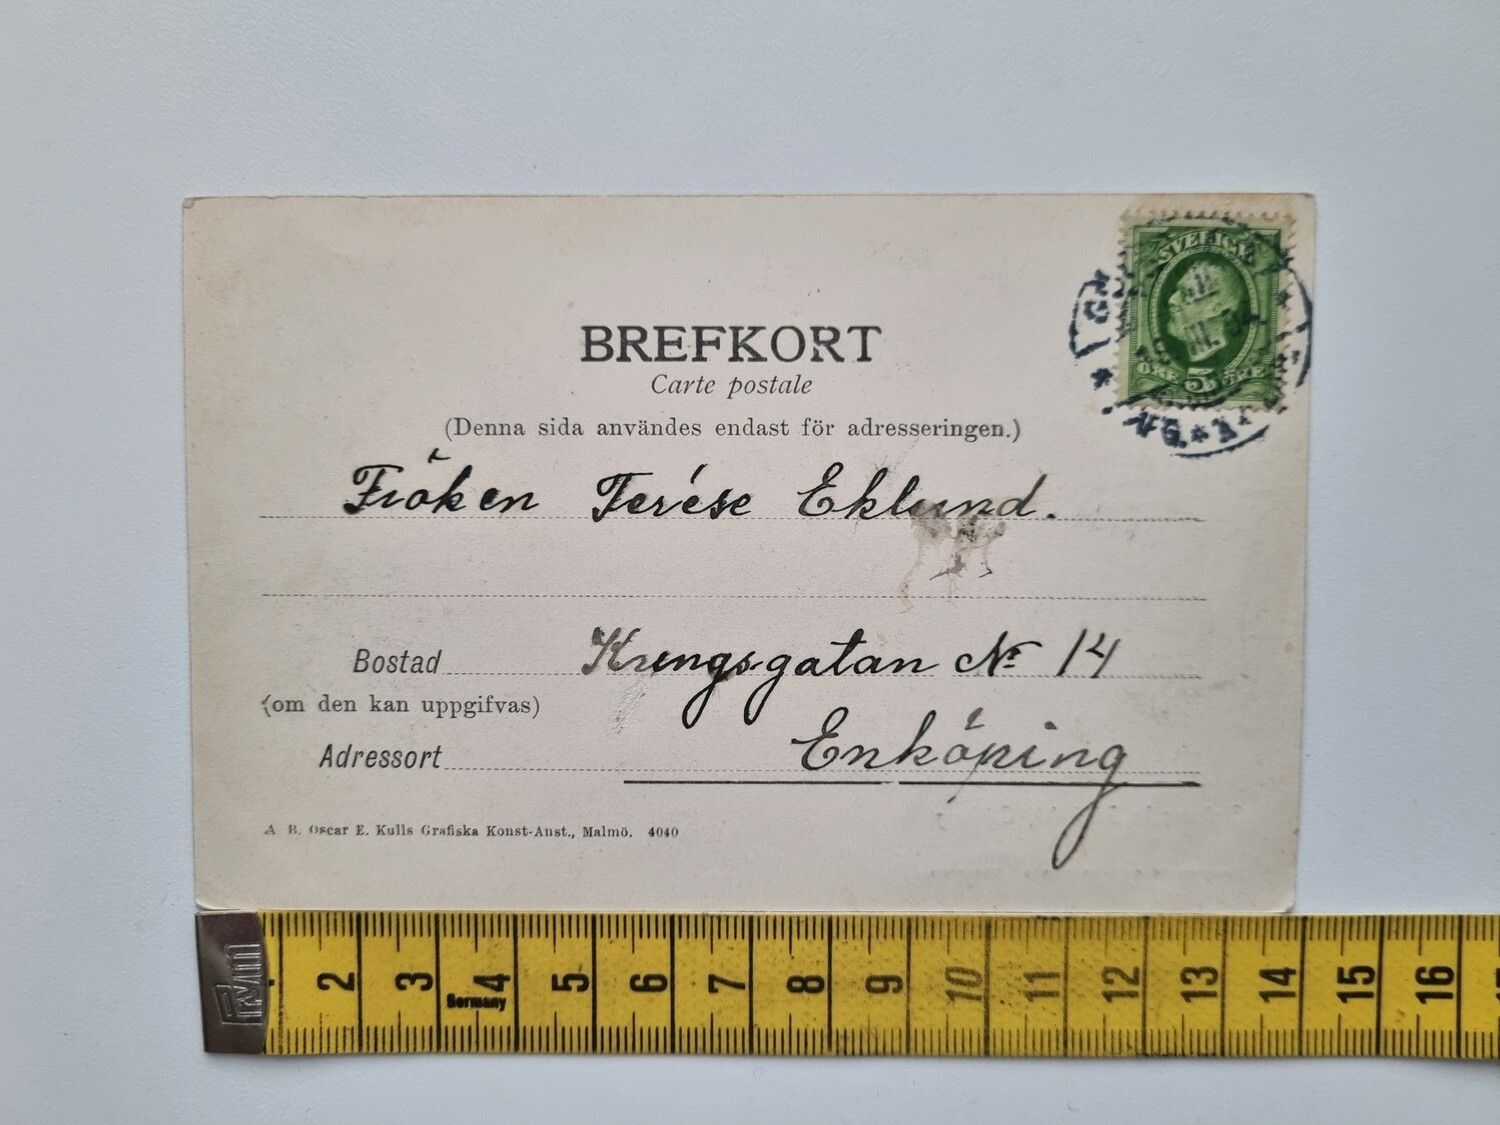 SVERIGE
ÖRE 5 ÖRE
BREFKORT
Carte postale
(Denna sida användes endast för adresseringen.)
Fröken Terése Eklund.
Bostad Kungsgatan No 14
(om den kan uppgifvas)
Adressort Enköping
A B. Oscar E. Kulls Grafiska Konst-Anst., Malmö. 4040
2 3 4 5 6 7 8 9 10 11 12 13 14 15 16
Germany